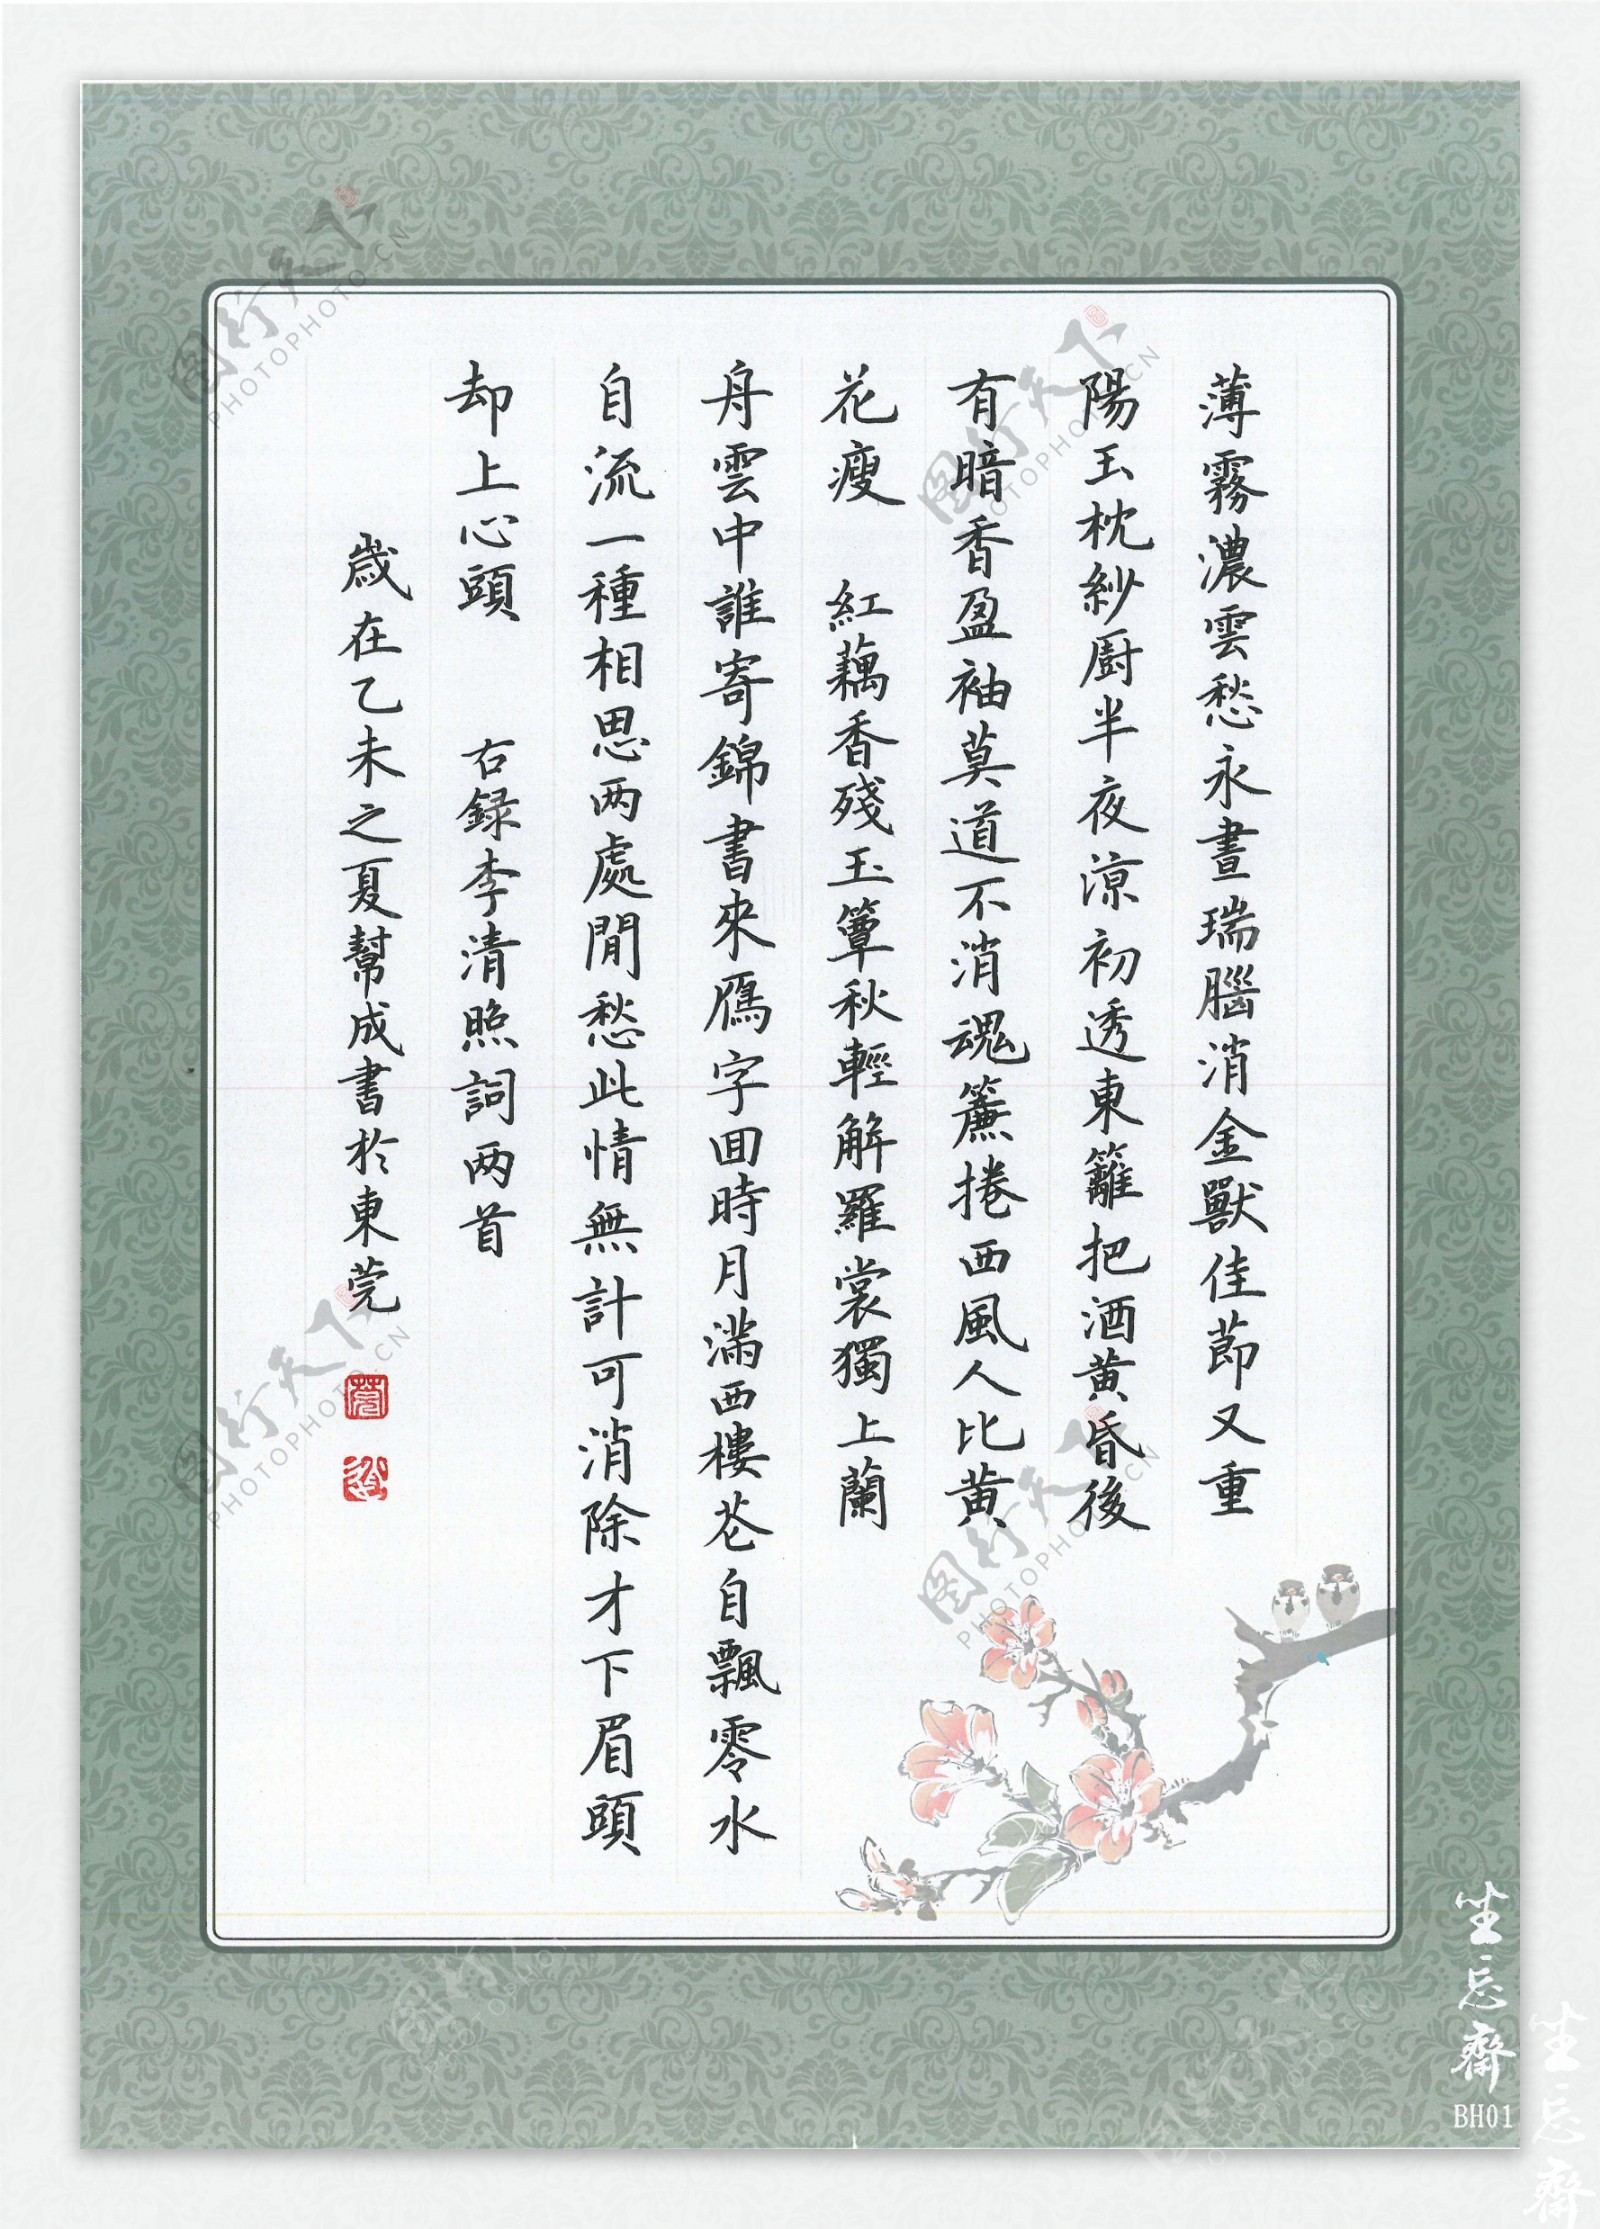 薄霧濃雲愁永晝瑞腦消金獸佳節又重
陽玉枕紗廚半夜涼初透東籬把酒黃昏後
有暗香盈袖莫道不消魂簾捲西風人比黃
花瘦 紅藕香殘玉簟秋輕解羅裳獨上蘭
舟雲中誰寄錦書來雁字回時月滿西樓花自飄零水
自流一種相思两處閒愁此情無計可消除才下眉頭
却上心頭 右録李清照詞两首
歲在乙未之夏幫成書於東莞
坐忘齋
BH01
坐忘齋
图行天下
PHOTOPHOTO.CN
图行天下
PHOTOPHOTO.CN
图行天下
PHOTOPHOTO.CN
图行天下
PHOTOPHOTO.CN